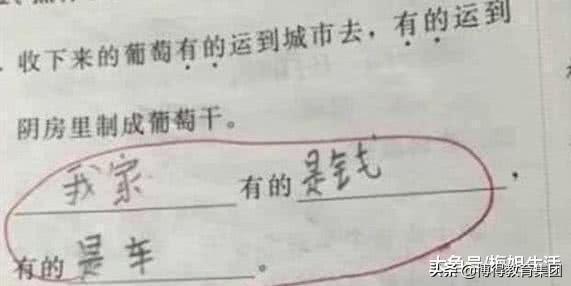 收下来的葡萄有的运到城市去，有的运到
阴房里制成葡萄干。
我家有的是钱，
有的是车。
头条@博得教育集团